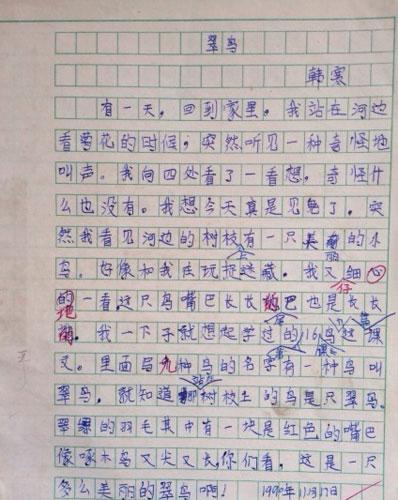 翠鸟
韩寒
有一天,回到家里。我站在河边
看菊花的时候,突然听见一种奇怪地
叫声。我向四处看了一看想。奇怪什
么也没有。我想今天真是见鬼了。突
然我看见河边的树枝有一只美丽的小
鸟。好像和我在玩捉迷藏。我又仔细
一看这只鸟嘴巴长长的巴也是长长
我一下子就想起学过的鸟这课
文。里面写种鸟的名字有一种鸟叫
翠鸟。就知道那树枝上的鸟是只翠鸟。
翠绿的羽毛其中有一块是红色的嘴巴
像啄木鸟又尖又长,你们看。这是一只
多么美丽的翠鸟啊!1990年11月17日